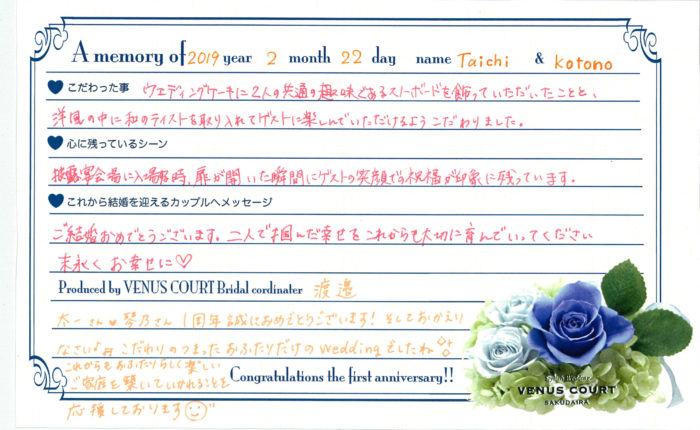 A memory of 2019 year 2 month 22 day name Taichi & Kotono
こだわった事 ウェディングケーキに2人の共通の趣味であるスノーボードを飾っていただいたことと、
洋風の中に和のテイストを取り入れてゲストに楽しんでいただけるようこだわりました。
心に残っているシーン
披露宴会場に入場時、扉が開いた瞬間にゲストの笑顔での祝福が印象に残っています。
これから結婚を迎えるカップルへメッセージ
ご結婚おめでとうございます。二人で掴んだ幸せをこれからも大切に育んでいってください
末永くお幸せに♡
Produced by VENUS COURT Bridal cordinater 渡邉
太一さん 琴乃さん 1周年誠におめでとうございます！そしておかえり
なさい♪ こだわりのつまったおふたりだけのweddingでしたね♪
これからもおふたりらしく楽しい
ご家庭を築いていかれることを
Congratulations the first anniversary!!
応援しております
VENUS COURT
SAKUDAIRA